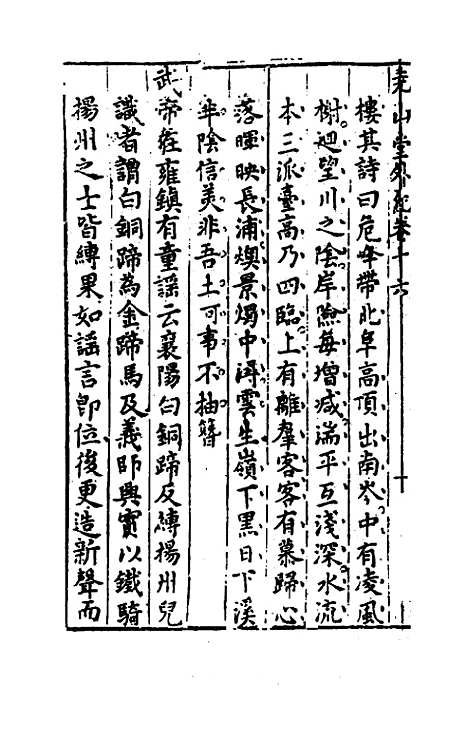 堯山堂外紀卷十六
十
樓其詩曰危峰帶北阜高頂出南岑中有凌風
榭迴望川之陰岸險每增減湍平互淺深水流
本三派臺高乃四臨上有離羣客客有慕歸心
落暉映長浦煥景燭中潯雲生嶺下黑日下溪
半陰信美非吾土何事不抽簪
武帝在雍鎮有童謠云襄陽白銅蹄反縛揚州兒
識者謂白銅蹄為金蹄馬及義師興實以鐵騎
揚州之士皆縛果如謡言即位後更造新聲而